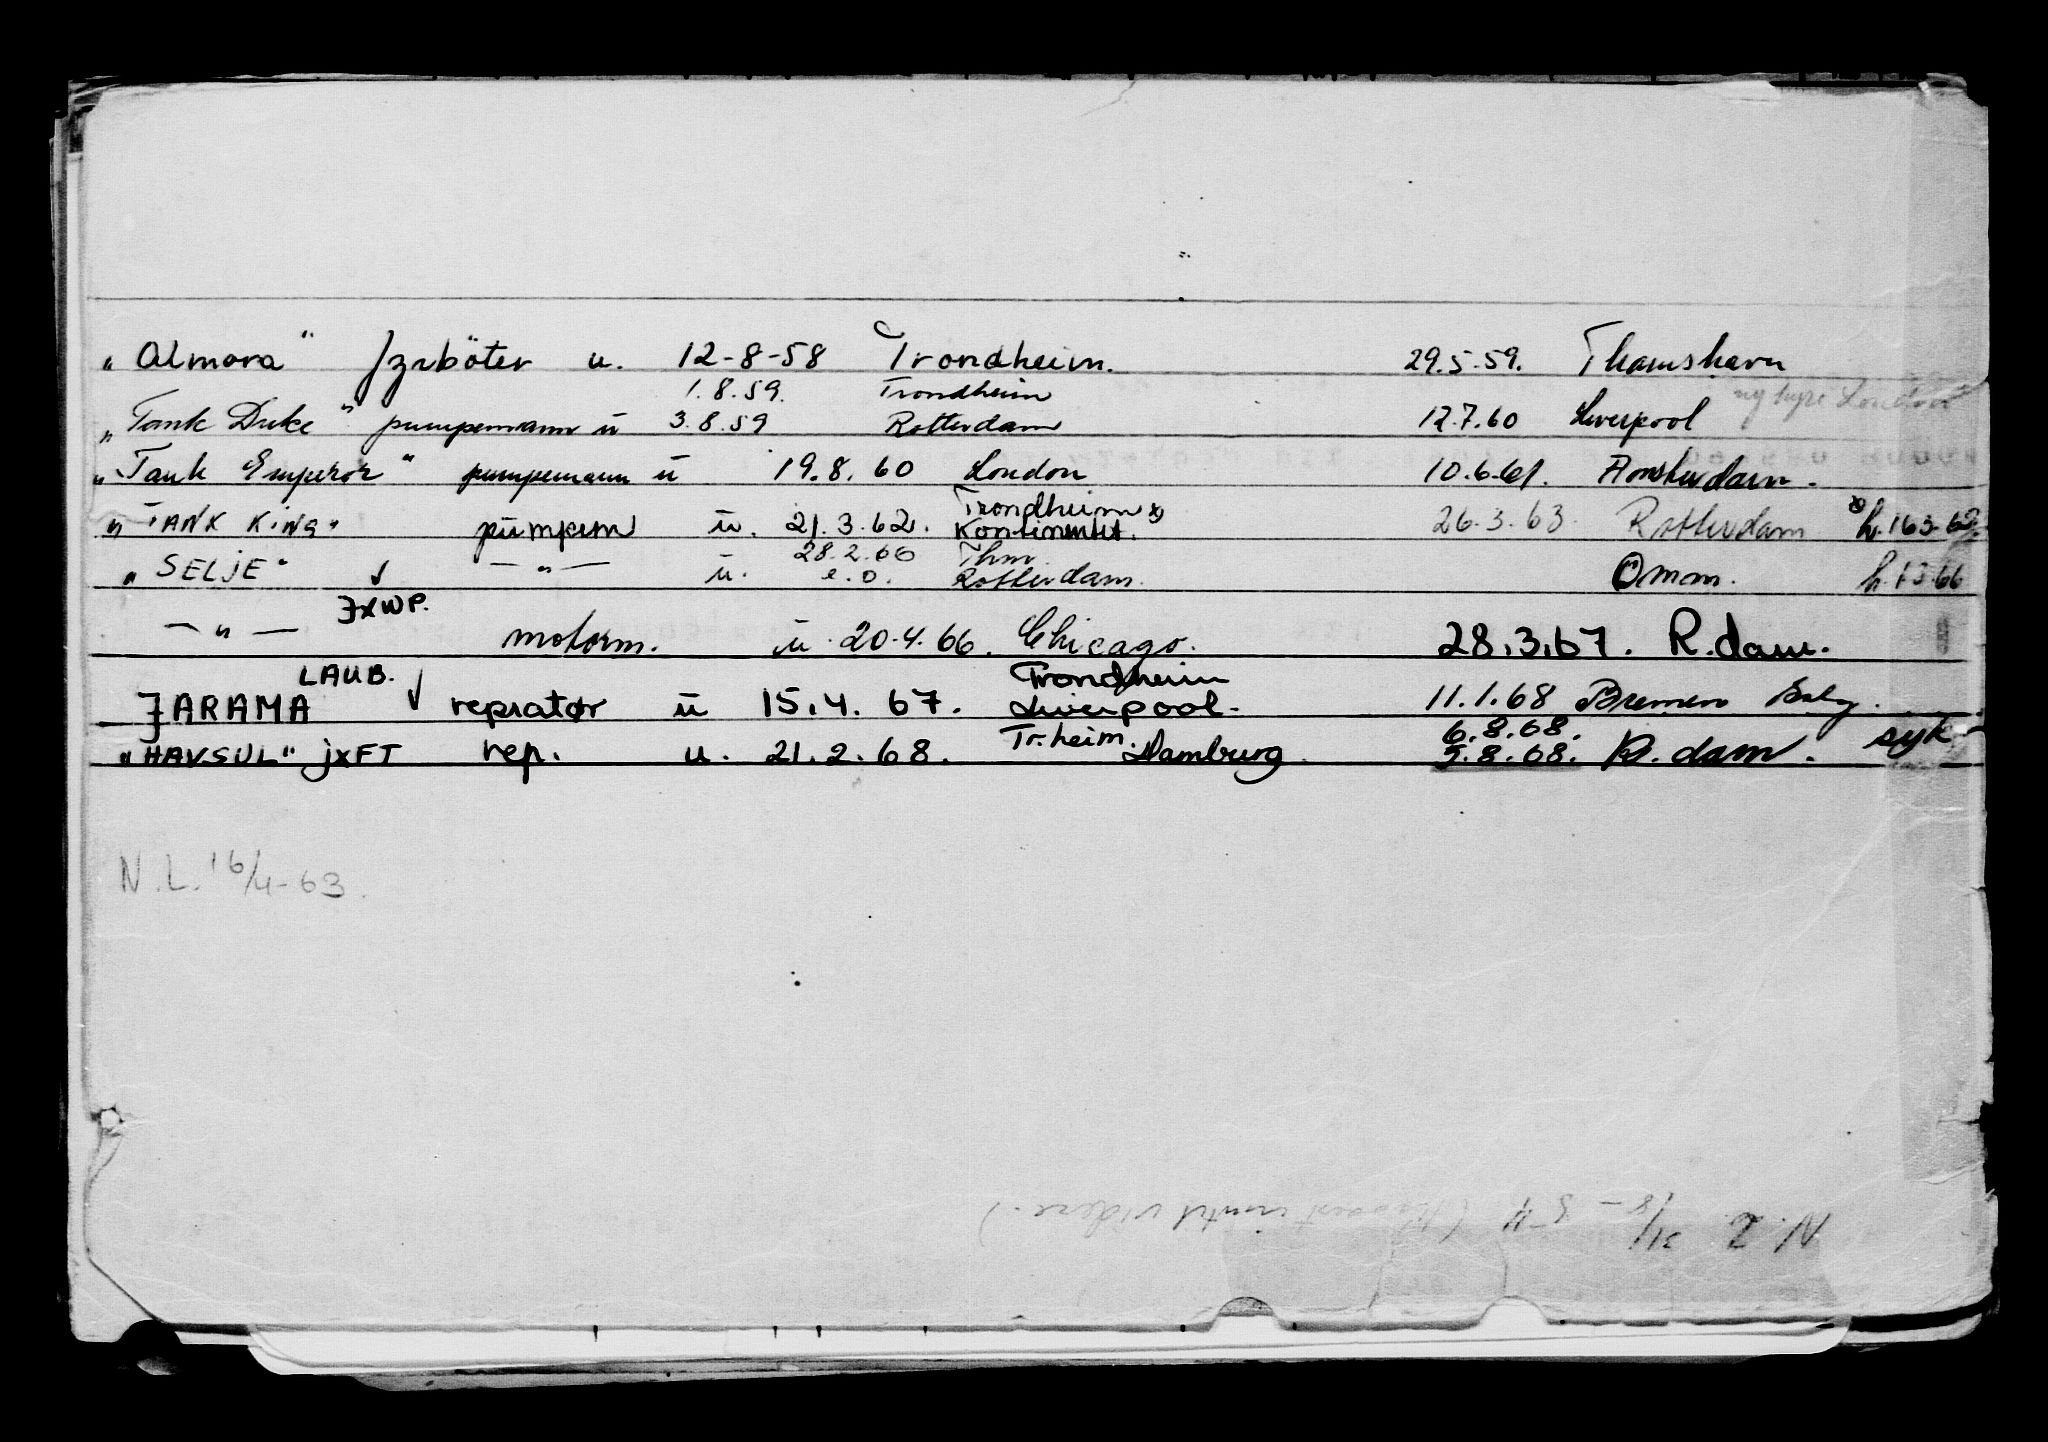 "Almora" fyrböter u. 12-8-58 Trondheim. 29.5.59. Thamshavn
1.8.59. Trondheim ny hyre London
"Tank Duke" pumpemann ü 3.8.59 Rotterdam 12.7.60 Liverpool
"Tank Emperor" pumpemann ü 19.8.60 London 10.6.61. Amsterdam.
Trondheim x)
"TANK KING" pumpem ü. 21.3.62. Kontinentet. 26.3.63. Rotterdam x) h. 163-62.
28.2.66 Thm.
"SELJE" — " — ü. e.o. Rotterdam. Omm. h. 1 3-66
JXWP.
— " — motorm. ü. 20.4.66. Chicago. 28.3.67. R.dam.
LAUB. Trondheim
JARAMA repratør ü 15.4.67. Liverpool. 11.1.68 Bremen
Tr.heim. 6.8.68. syk
"HAVSUL" JXFT rep. u. 21.2.68. Hamburg. 9.8.68. R.dam.
N.L. 16/4-63.
N.L. 31/8-54 inntil videre.)